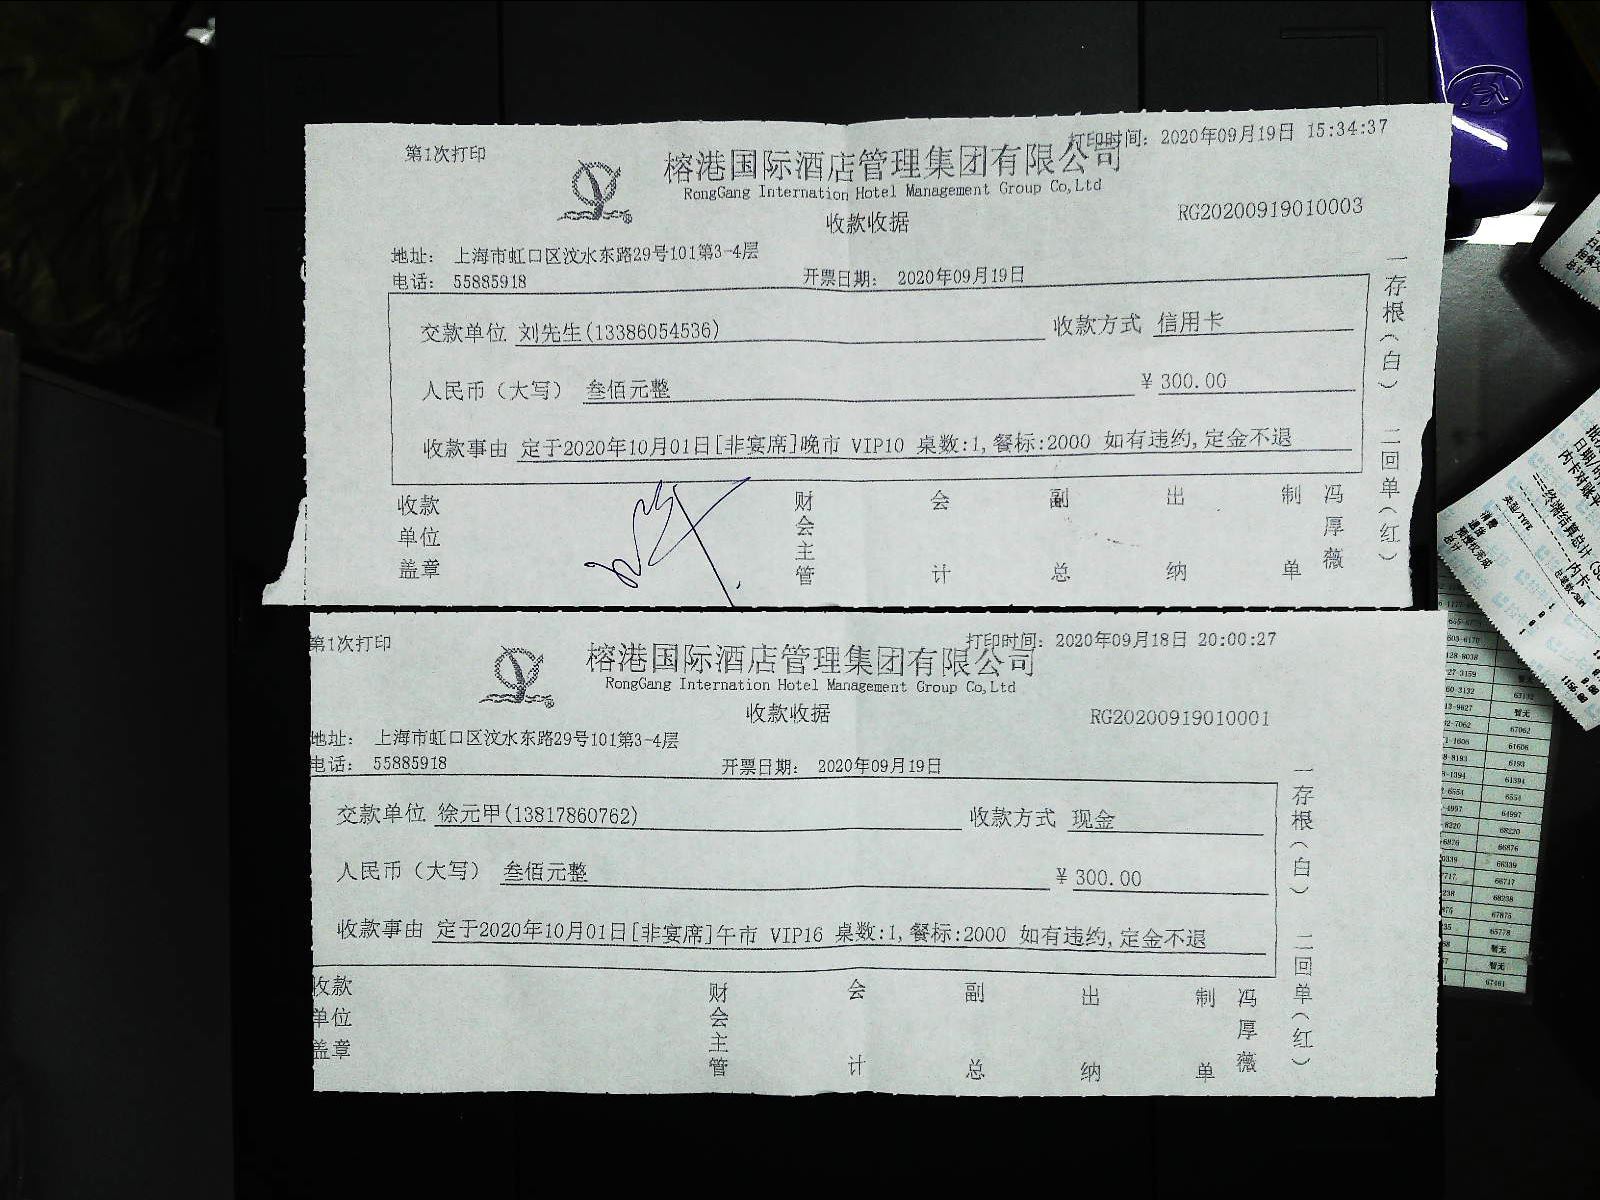 第1次打印
打印时间: 2020年09月19日 15:34:37
榕港国际酒店管理集团有限公司
RongGang Internation Hotel Management Group Co,Ltd
收款收据
RG20200919010003
地址: 上海市虹口区汶水东路29号101第3-4层
电话: 55885918 开票日期: 2020年09月19日
交款单位 刘先生(13386054536) 收款方式 信用卡
人民币（大写） 叁佰元整 ¥ 300.00
收款事由 定于2020年10月01日[非宴席]晚市 VIP10 桌数:1,餐标:2000 如有违约,定金不退
收款单位盖章 财会主管 会计 副总 出纳 制单 冯厚薇
一存根(白) 二回单(红)
第1次打印
打印时间: 2020年09月18日 20:00:27
榕港国际酒店管理集团有限公司
RongGang Internation Hotel Management Group Co,Ltd
收款收据
RG20200919010001
地址: 上海市虹口区汶水东路29号101第3-4层
电话: 55885918 开票日期: 2020年09月19日
交款单位 徐元甲(13817860762) 收款方式 现金
人民币（大写） 叁佰元整 ¥ 300.00
收款事由 定于2020年10月01日[非宴席]午市 VIP16 桌数:1,餐标:2000 如有违约,定金不退
收款单位盖章 财会主管 会计 副总 出纳 制单 冯厚薇
一存根(白) 二回单(红)